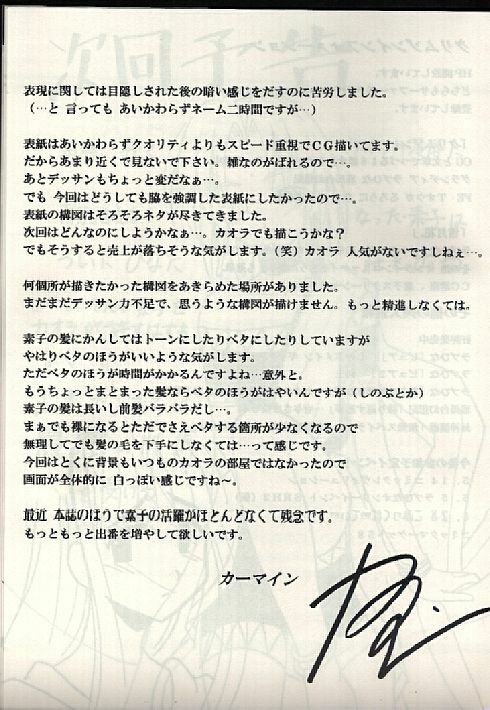 表現に関しては目隠しされた後の暗い感じをだすのに苦労しました。
（…と 言っても あいかわらずネーム二時間ですが…）
表紙はあいかわらずクオリティよりもスピード重視でＣＧ描いてます。
だからあまり近くで見ないで下さい。雑なのがばれるので…。
あとデッサンもちょっと変だなぁ…。
でも 今回はどうしても脇を強調した表紙にしたかったので…。
表紙の構図はそろそろネタが尽きてきました。
次回はどんなのにしようかなぁ…。カオラでも描こうかな？
でもそうすると売上が落ちそうな気がします。（笑）カオラ 人気がないですしねぇ…。
何個所が描きたかった構図をあきらめた場所がありました。
まだまだデッサン力不足で、思うような構図が描けません。もっと精進しなくては。
素子の髪にかんしてはトーンにしたりベタにしたりしていますが
やはりベタのほうがいいような気がします。
ただベタのほうが時間がかかるんですよね…意外と。
もうちょっとまとまった髪ならベタのほうがはやいんですが（しのぶとか）
素子の髪は長いし前髪バラバラだし…。
まぁでも裸になるとただでさえベタする箇所が少なくなるので
無理してでも髪の毛を下手にしなくては…って感じです。
今回はとくに背景もいつものカオラの部屋ではなかったので
画面が全体的に 白っぽい感じですね～。
最近 本誌のほうで素子の活躍がほとんどなくて残念です。
もっともっと出番を増やして欲しいです。
カーマイン